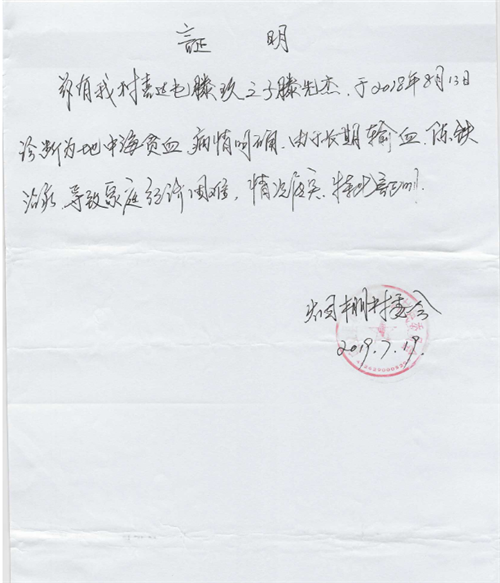 証 明
兹有我村喜达屯滕玖之子滕先杰,于2018年8月13日
诊断为地中海贫血,病情明确.由于长期输血.除铁
治疗.导致家庭经济困难,情况属实.特此証明!
棚村委会
2019.7.19.